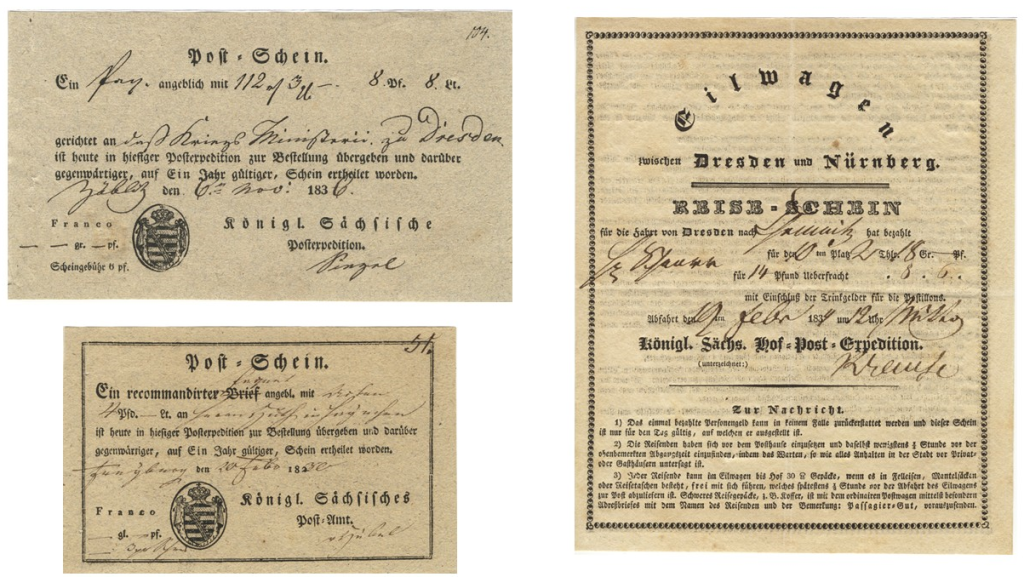 104.
Post-Schein.
Ein Paq. angeblich mit 112 3 — 8. Pf. 8. Lt.
gerichtet an daß Kriegs Ministerii. zu Dresden.
ist heute in hiesiger Postexpedition zur Bestellung übergeben und darüber
gegenwärtiger, auf Ein Jahr gültiger, Schein ertheilet worden.
Zöblitz den 6 Nov: 1836.
Franco
— gr. — pf.
Scheingebühr 6 pf.
Königl. Sächsische
Postexpedition.
Post-Schein.
Ein recommandirter Brief angebl. mit
4 Pfd. — Lt. an
ist heute in hiesiger Postexpedition zur Bestellung übergeben und darüber
gegenwärtiger, auf Ein Jahr gültiger, Schein ertheilet worden.
den 20 Febr 1830
Franco
gl. — pf.
Königl. Sächsisches
Post-Amt.
Eilwagen
zwischen Dresden und Nürnberg.
REISE-SCHEIN
für die Fahrt von Dresden nach Chemnitz hat bezahlt
für den 10ten Platz 2 Thlr. 18 Gr. — Pf.
für 14 Pfund Ueberfracht . 8. 6.
mit Einschluß der Trinkgelder für die Postillons.
Abfahrt den 19ten Febr 1834 um 12 Uhr Mittag
Königl. Sächs. Hof-Post-Expedition.
(unterzeichnet:)
Zur Nachricht.
1) Das einmal bezahlte Personengeld kann in keinem Falle zurückerstattet werden und dieser Schein
ist nur für den Tag gültig, auf welchen er ausgestellt ist.
2) Die Reisenden haben sich vor dem Posthause einzusetzen und daselbst wenigstens ¼ Stunde vor der
obenbemerkten Abgangszeit einzufinden, indem das Warten, so wie alles Anhalten in der Stadt vor Privat-
oder Gasthäusern untersagt ist.
3) Jeder Reisende kann im Eilwagen bis Hof 30 ℔ Gepäcke, wenn es in Felleisen, Mantelsäcken
oder Reisetaschen besteht, frei mit sich führen, welches spätestens ½ Stunde vor der Abfahrt des Eilwagens
zur Post abzuliefern ist. Schweres Reisegepäcke, z. B. Koffer, ist mit dem ordinairen Postwagen mittelst besondern
Adreßbriefes mit dem Namen des Reisenden und der Bemerkung: Passagier-Gut, vorauszusenden.